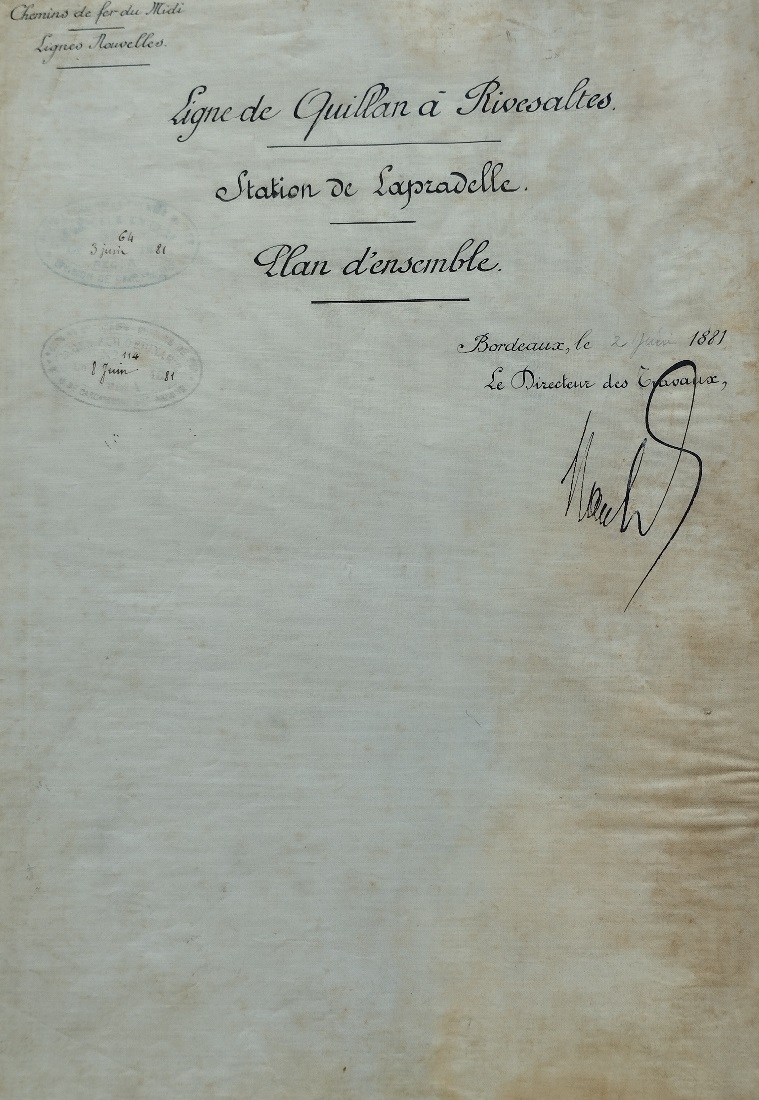 Chemins de fer du Midi
Lignes Nouvelles.
Ligne de Quillan à Rivesaltes.
Station de Lapradelle.
Plan d'ensemble.
64
3 juin 81
Bordeaux, le 2 Juin 1881
Le Directeur des Travaux,
114
8 Juin 81